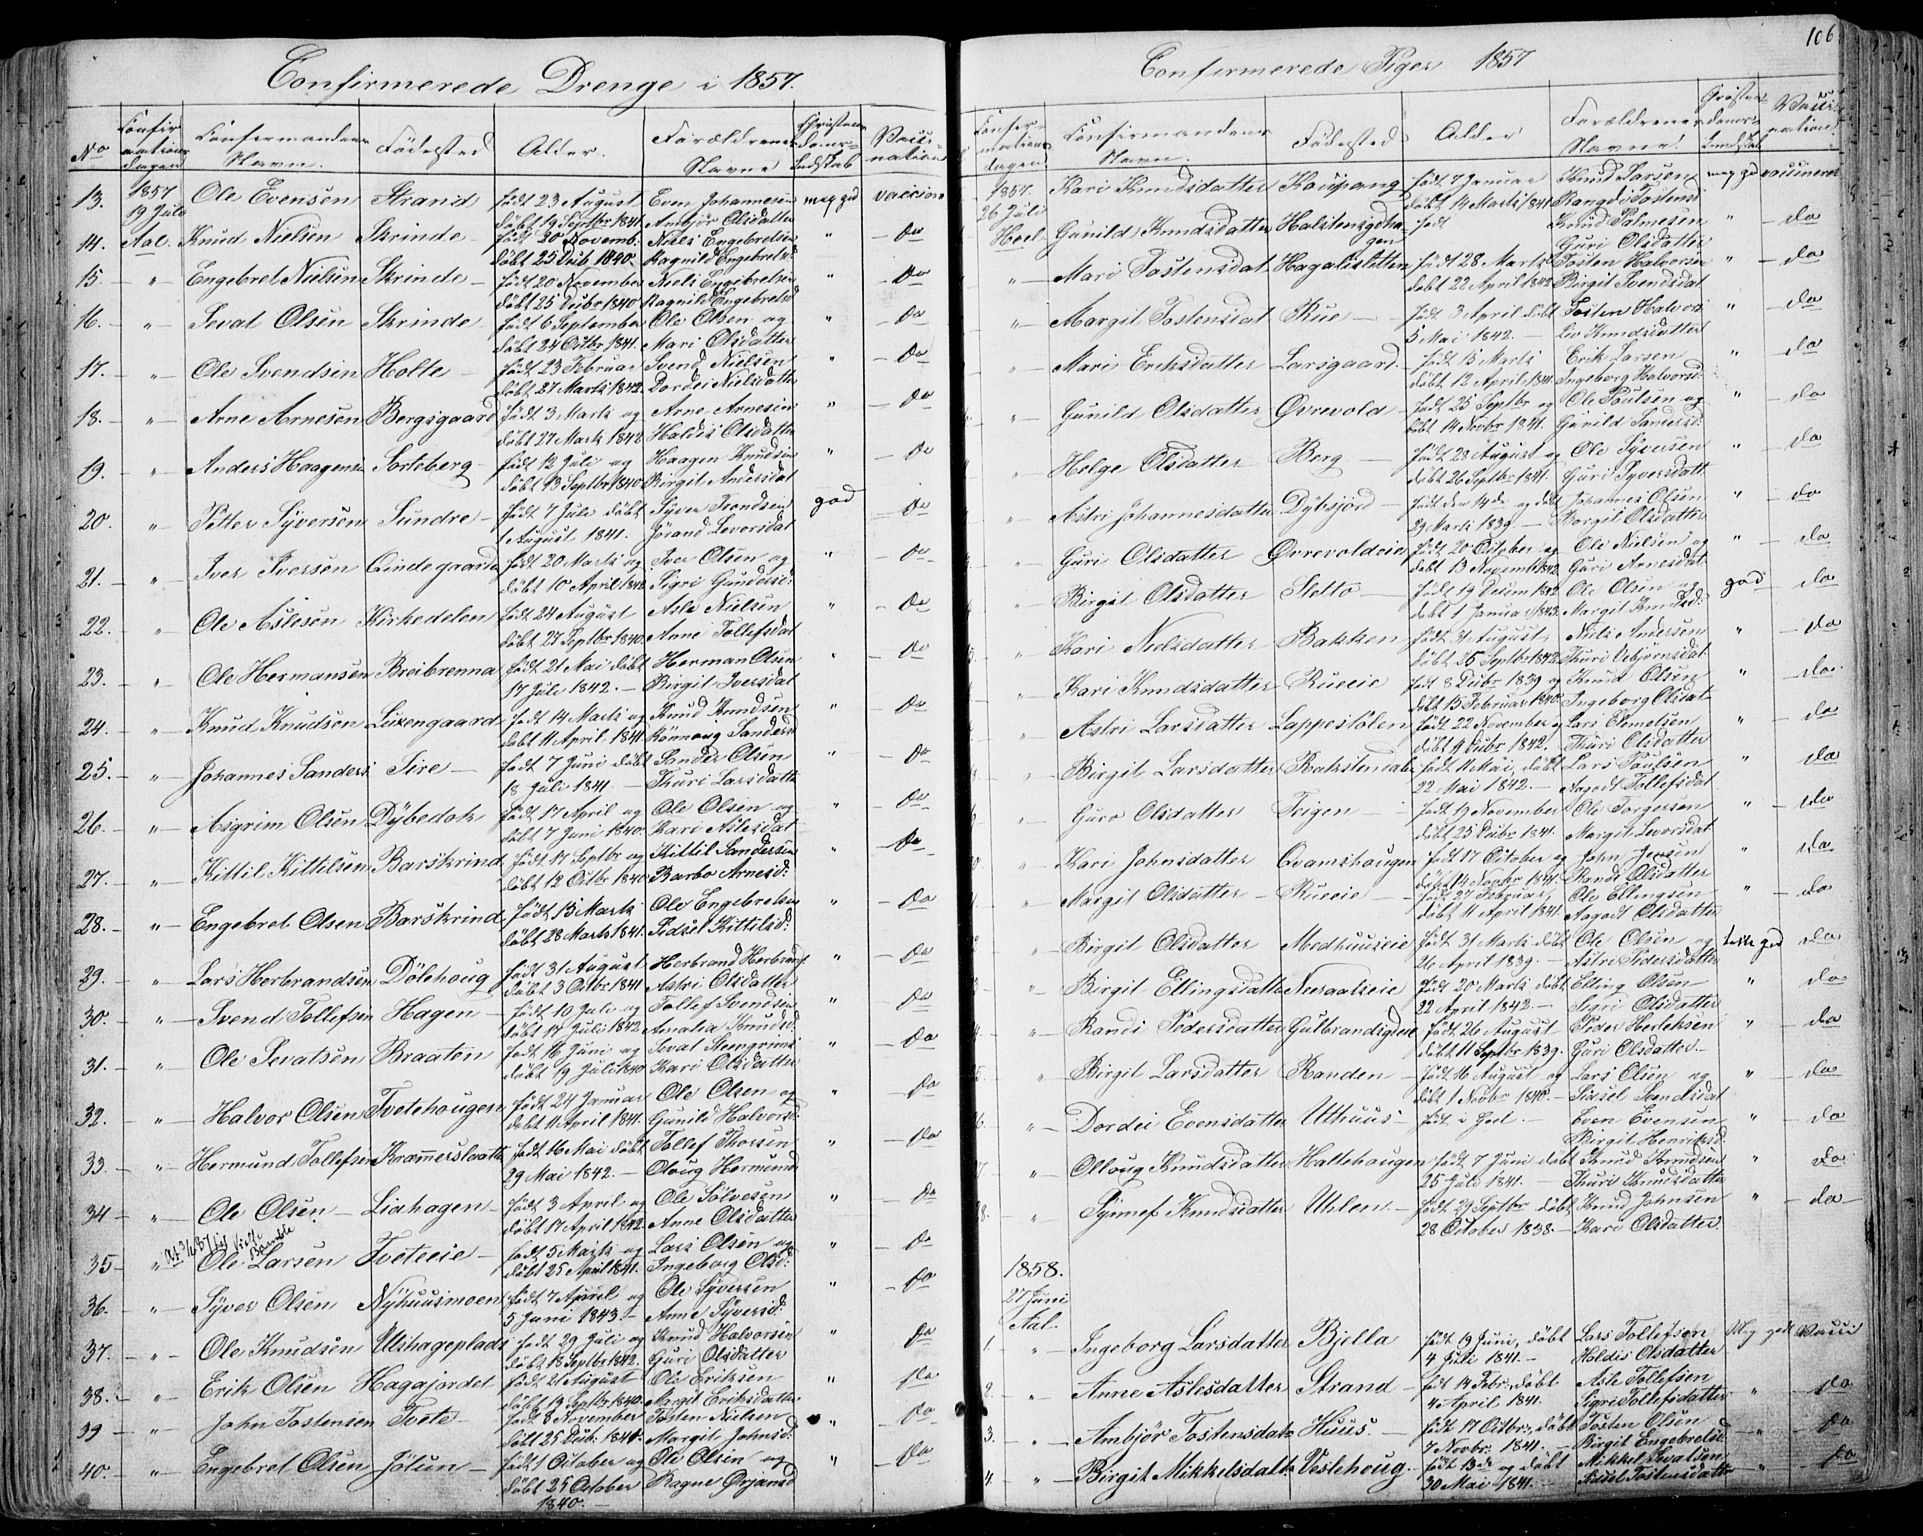 Confirmerede Drenge i 1857.
No Confirmationsdagen Confirmandens Navn. Fødested Alder. Forældrenes Navne Christendoms-kundskab Vaccination
13. 1857 19 Juli Ole Evensen Strand født 23 August døbt 19 Septbr 1841 Even Johannesen Ambjør Olsdatter meg god vaccion
14. Aal. Knud Nielsen Skrinde født 20 Novemb. døbt 25 Debr. 1840. Niels Engebretsen Ragnild Engebretsd. " Do
15. " Engebret Nielsen Skrinde født 20 November døbt 25 Debr 1840 Niels Engebretsen Ragnild Engebretsd " Do
16. " Sevat Olsen Skrinde født 6 September døbt 24 Octbr 1841. Ole Olsen og Mari Olsdatter " Do
17. " Ole Svendsen Holte født 23 Februar døbt 27 Marts 1842 Svend Nielsen Dordei Nielsdatter " Do
18. " Arne Arnesen Bergsgaard født 3 Marts og døbt 27 Marts 1842 Arne Arnesen Haldis Olsdatter " Do
19. " Anders Haagens Sorteberg født 12 Juli og døbt 13 Septbr 1840 Haagen Knudsen Birgit Andersdat " Do
20. " Petter Syversen Sundre født 7 Juli døbt 1 August 1841. Syver Trondsen Jørand Levorsdat god Do
21. " Iver Iversen Qindegaard født 20 Marts og døbt 10 April 1842 Iver Olsen og Sigri Gundersd: " Do
22. " Ole Aslesen Kirkedelen født 24 August døbt 27 Septbr 1840. Asle Nielsen Anne Tollefsdat " Do
23. " Ole Hermansen Breibrenna født 21 Mai døbt 17 Juli 1842. Herman Olsen Birgit Iversdat " Do
24. " Knud Knudsen Luxengaard født 14 Marts og døbt 11 April 1841. Knud Knudsen Rønnoug Sandersd " Do
25. " Johannes Sanders Sire født 7 Juni døbt 18 Juli 1841. Sander Olsen Thuri Larsdatter " Do
26. " Asgrim Olsen Dybedok født 17 April og døbt 7 Juni 1840. Ole Olsen og Kari Nilesdat " Do
27. " Kittil Kittilsen Barskrind født 17 Septbr og døbt 12 Octbr 1840 Kittil Sandersen Barbo Arnesd: " Do
28. " Engebret Olsen Barskrind født 13 Marts døbt 28 Marts 1841. Ole Engebretsen Sidsel Kittilsd: " Do
29. " Lars Herbrandsen Dølehoug født 31 August døbt 3 Octbr 1841 Herbrand Herbrand Astri Olsdatter " Do
30. " Svend Tollefsen Hagen født 10 Juli og døbt 17 Juli 1842 Tollef Svendsen Amalia Knudsd. " Do
31. " Ole Sevatsen Braaten født 16 Juni og døbt 19 Juli 1840 Sevat Stengrims Kari Olsdatter " Do
32. " Halvor Olsen Tvetehougen født 24 Januar døbt 11 April 1841. Ole Olsen og Gunild Halvorsd. " Do
33. " Hermund Tollefsen Kræmmerslaatte født 16 Mai døbt 29 Mai 1842. Tollef Thorsen Olaug Hermund " Do
34 " Ole Olsen Liahagen født 3 April og døbt 17 April 1842 Ole Sølvesen Anne Olsdatter " Do
35 " Ole Larsen Tveteeie født 5 Marts og døbt 25 April 1841. Lars Olsen og Ingeborg Olsd: " Do
36. " Syver Olsen Nyhuusmoen født 7 April og 5 Juni 1843. Ole Syversen Anne Syversd. " Do
37. " Ole Knudsen Ulshageplads født 29 Juli og døbt 18 Septbr 1842. Knud Halvorsen Guri Olsdatter " Do
38. " Erik Olsen Hagajordet født 21 August døbt 13 Septbr 1840. Ole Eriksen Margit Eriksdatter " Do
39 " John Tostensen Tvete født 8 November døbt 25 Debr. 1841. Tosten Nielsen Margit Johnsd. " Do
40. " Engebret Olsen Jøtun født 1 October og døbt 25 October 1840. Ole Olsen og Ragne Ørjansd " Do
106
Confirmerede Piger 1857
Confirmationsdagen Confirmandens Navn. Fødested Alder Forældrenes Navne. Christendoms-kundskab Vaccination
1857. 26 Juli Kari Knudsdatter Kaupang født 7 Januar døbt 14 Marts 1841 Knud Larsen Rangdi Tostens meg god vaccineret
Hoel Gunild Knudsdatter Halstensgdhagen født Knud Palmesen Guri Olsdatter " do
" Mari Tostensdat Hagaslistetten født 28 Marts døbt 22 April 1842 Tosten Halvorsen Birgit Svendsdat " do
" Margit Tostensdat Rue født 3 April døbt 5 Mai 1842. Tosten Halvors Liv Knudsdatter " do
" Mari Eriksdatter Larsgaard født 15 Marts døbt 12 April 1841. Erik Larsen Ingeborg Halvorsd. " do
" Gunild Olsdatter Øvrevold født 25 Septbr og døbt 14 Novbr 1841. Ole Poulsen og Gunild Sandersd. " do
" Helge Olsdatter Berg født 23 August og døbt 26 Septbr 1841. Ole Syversen Guri Syversdatt " do
" Astri Johannesdatter Dybsjord født den 14de og døbt 29 Marts 1839 Johannes Olsen Margit Olsdatter " do
" Guri Olsdatter Øvrevoldeie født 20 October og døbt 13 Novemb 1842 Ole Nielsen og Guri Arnesdat " do
" Birgit Olsdatter Sletto født 19 Decem 1842 døbt 1 Janua 1843. Ole Olsen og Margit Knudsd: god do
" Kari Nielsdatter Bakken født 31 August, døbt 25 Septbr 1842. Niels Andersen Thuri Vebjørnsdat " do
" Kari Knudsdatter Rueeie født 8 Debr 1839 og døbt 15 Februar 1840. Knud Olsen Ingeborg Olsdat " do
" Astri Larsdatter Lappestølen født 22 November og døbt 9 Debr 1842. Lars Thuri Olsdatter " do
" Birgit Larsdatter født 11 Mai, døbt 22 Mai 1842. Lars Paulsen Aagodt Tollefsdat " do
" Guro Olsdatter Trigen født 19 November døbt 25 Debr 1841. Ole Torgersen Margit Levorsdat " do
" Kari Johnsdatter Qvamshaugen født 17 October og døbt 14 Novbr 1841. John Jensen Randi Olsdatter " do
" Margit Olsdatter Rueeie født 27 Februar, døbt 11 April 1841. Ole Ellingsen Aagodt Olsdatter " do
" Birgit Olsdatter Medhuuseie født 31 Marts døbt 26 April 1839. Ole Olsen og Astri Pedersdatter god do
" Birgit Ellingsdatter Neeraaleie født 20 Marts døbt 22 April 1842. Elling Olsen Sigri Olsdatter " do
" Randi Pedersdatter Gulbrandsgdeie født 26 August døbt 11 Septbr 1839. Peder Herleksen Guri Olsdatter " do
" Birgit Larsdatter Randen født 16 August og døbt 1 Novbr 1840. Lars Olsen og Sidsel Svendsdat " do
" Dordei Evensdatter Uthuus født i Gol. Even Evensen Birgit Henriksd. " do
" Olloug Knudsdatter Haltehaugen født 7 Juni døbt 25 Juli 1841. Knud Knudsen Thuri Knudsdatter " do
" Synnef Knudsdatter Uhlen født 29 Septbr. døbt 28 October 1838. Knud Johnsen Kari Olsdatter " do
1858.
27 Juni
Aal.
1. " Ingeborg Larsdatter Bjella født 19 Juni, døbt 4 Juli 1841. Lars Tollefsen Haldis Olsdatter Meg godt Vacci
2. " Anne Aslesdatter Strand født 14 Febr., døbt 4 April 1841. Asle Tollefsen Sigri Tollefsdatter " do
3. " Ambjør Tostensdat Huus født 17 Octbr., døbt 7 Novbr. 1841. Tosten Olsen Birgit Engebretsd. " do
4. " Birgit Mikkelsdatter Veslehoug født 13de og døbt 30 Mai 1841. Mikkel Sevatsen Sidsel Tostensdatter " do